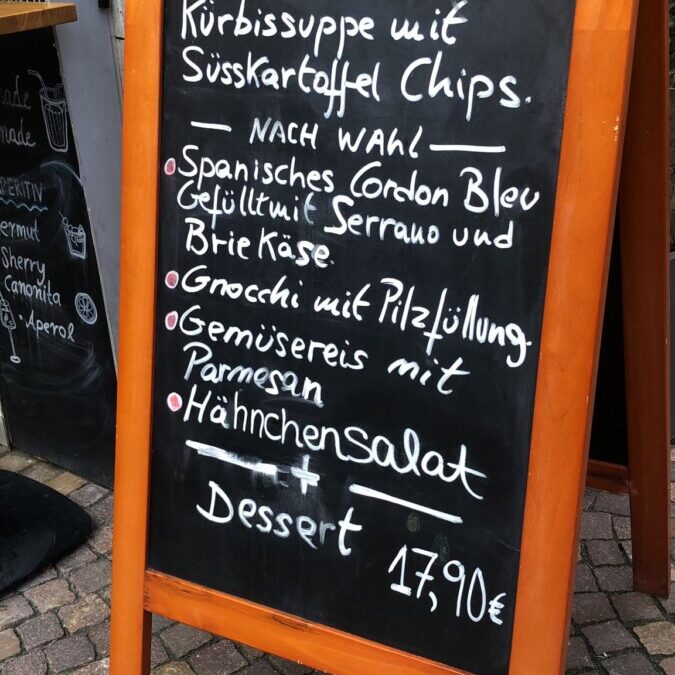 Kürbissuppe mit
Süsskartoffel Chips.
NACH WAHL
Spanisches Cordon Bleu
Gefüllt mit Serrano und
Brie Käse.
Gnocchi mit Pilzfüllung.
Gemüsereis mit
Parmesan
Hähnchensalat
+
Dessert
17,90€
Sherry
Canonita
Aperol